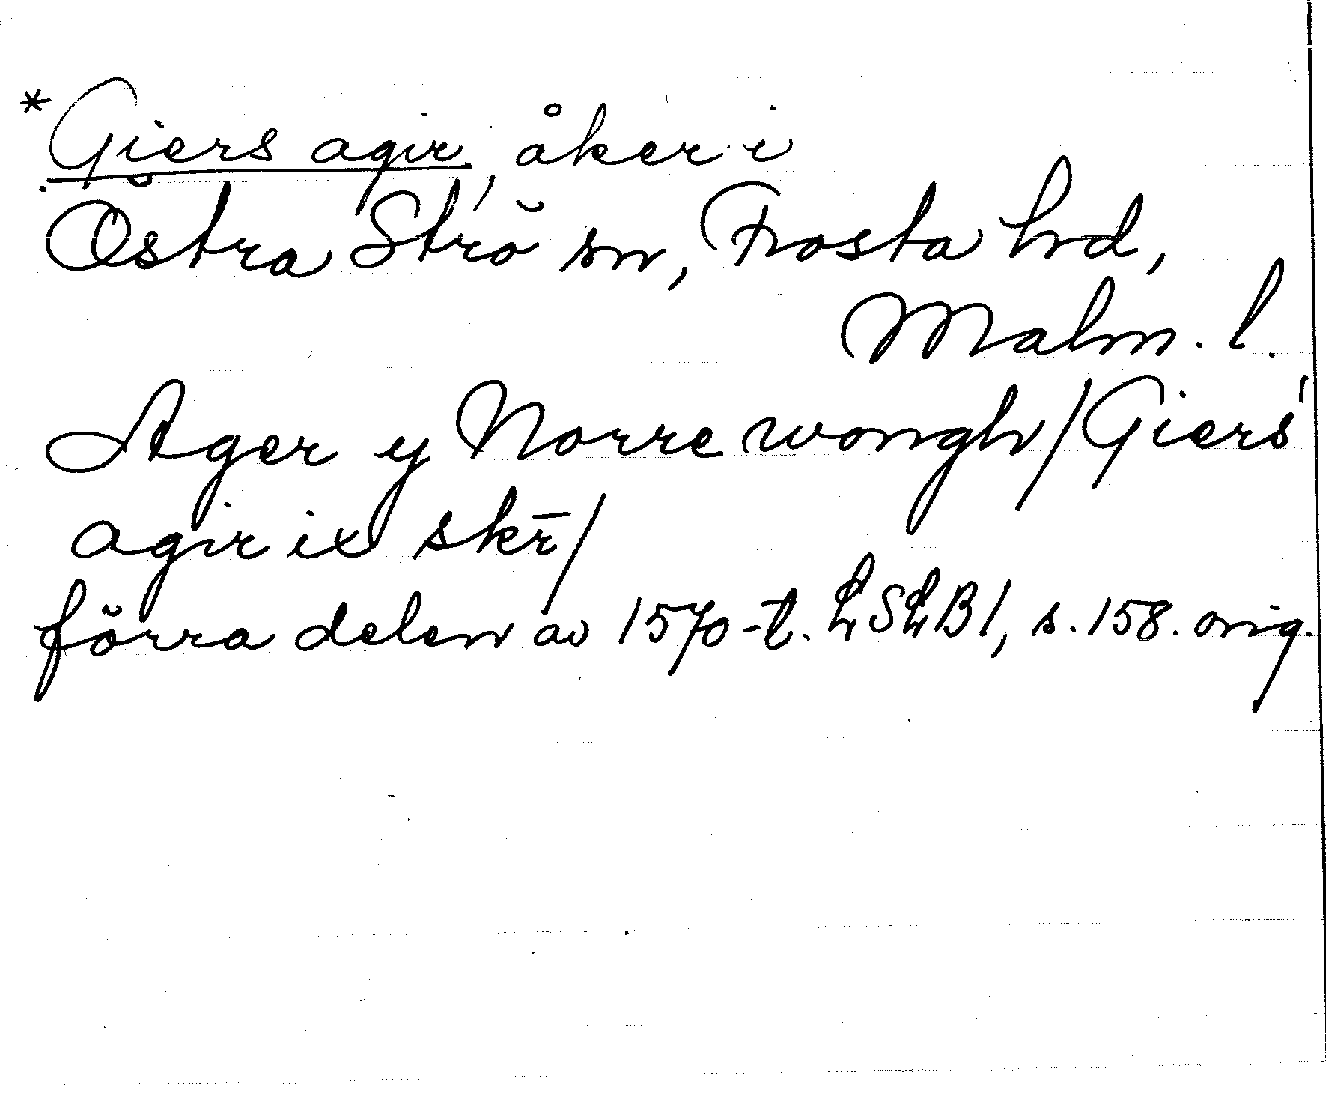 *Giers agir, åker i
Östra Strö sn, Frosta hd,
Malm. l.
Ager y Norre wongh/Giers
agir ix skr̄/
förra delen av 1570-t. LSLB1, s. 158. orig.